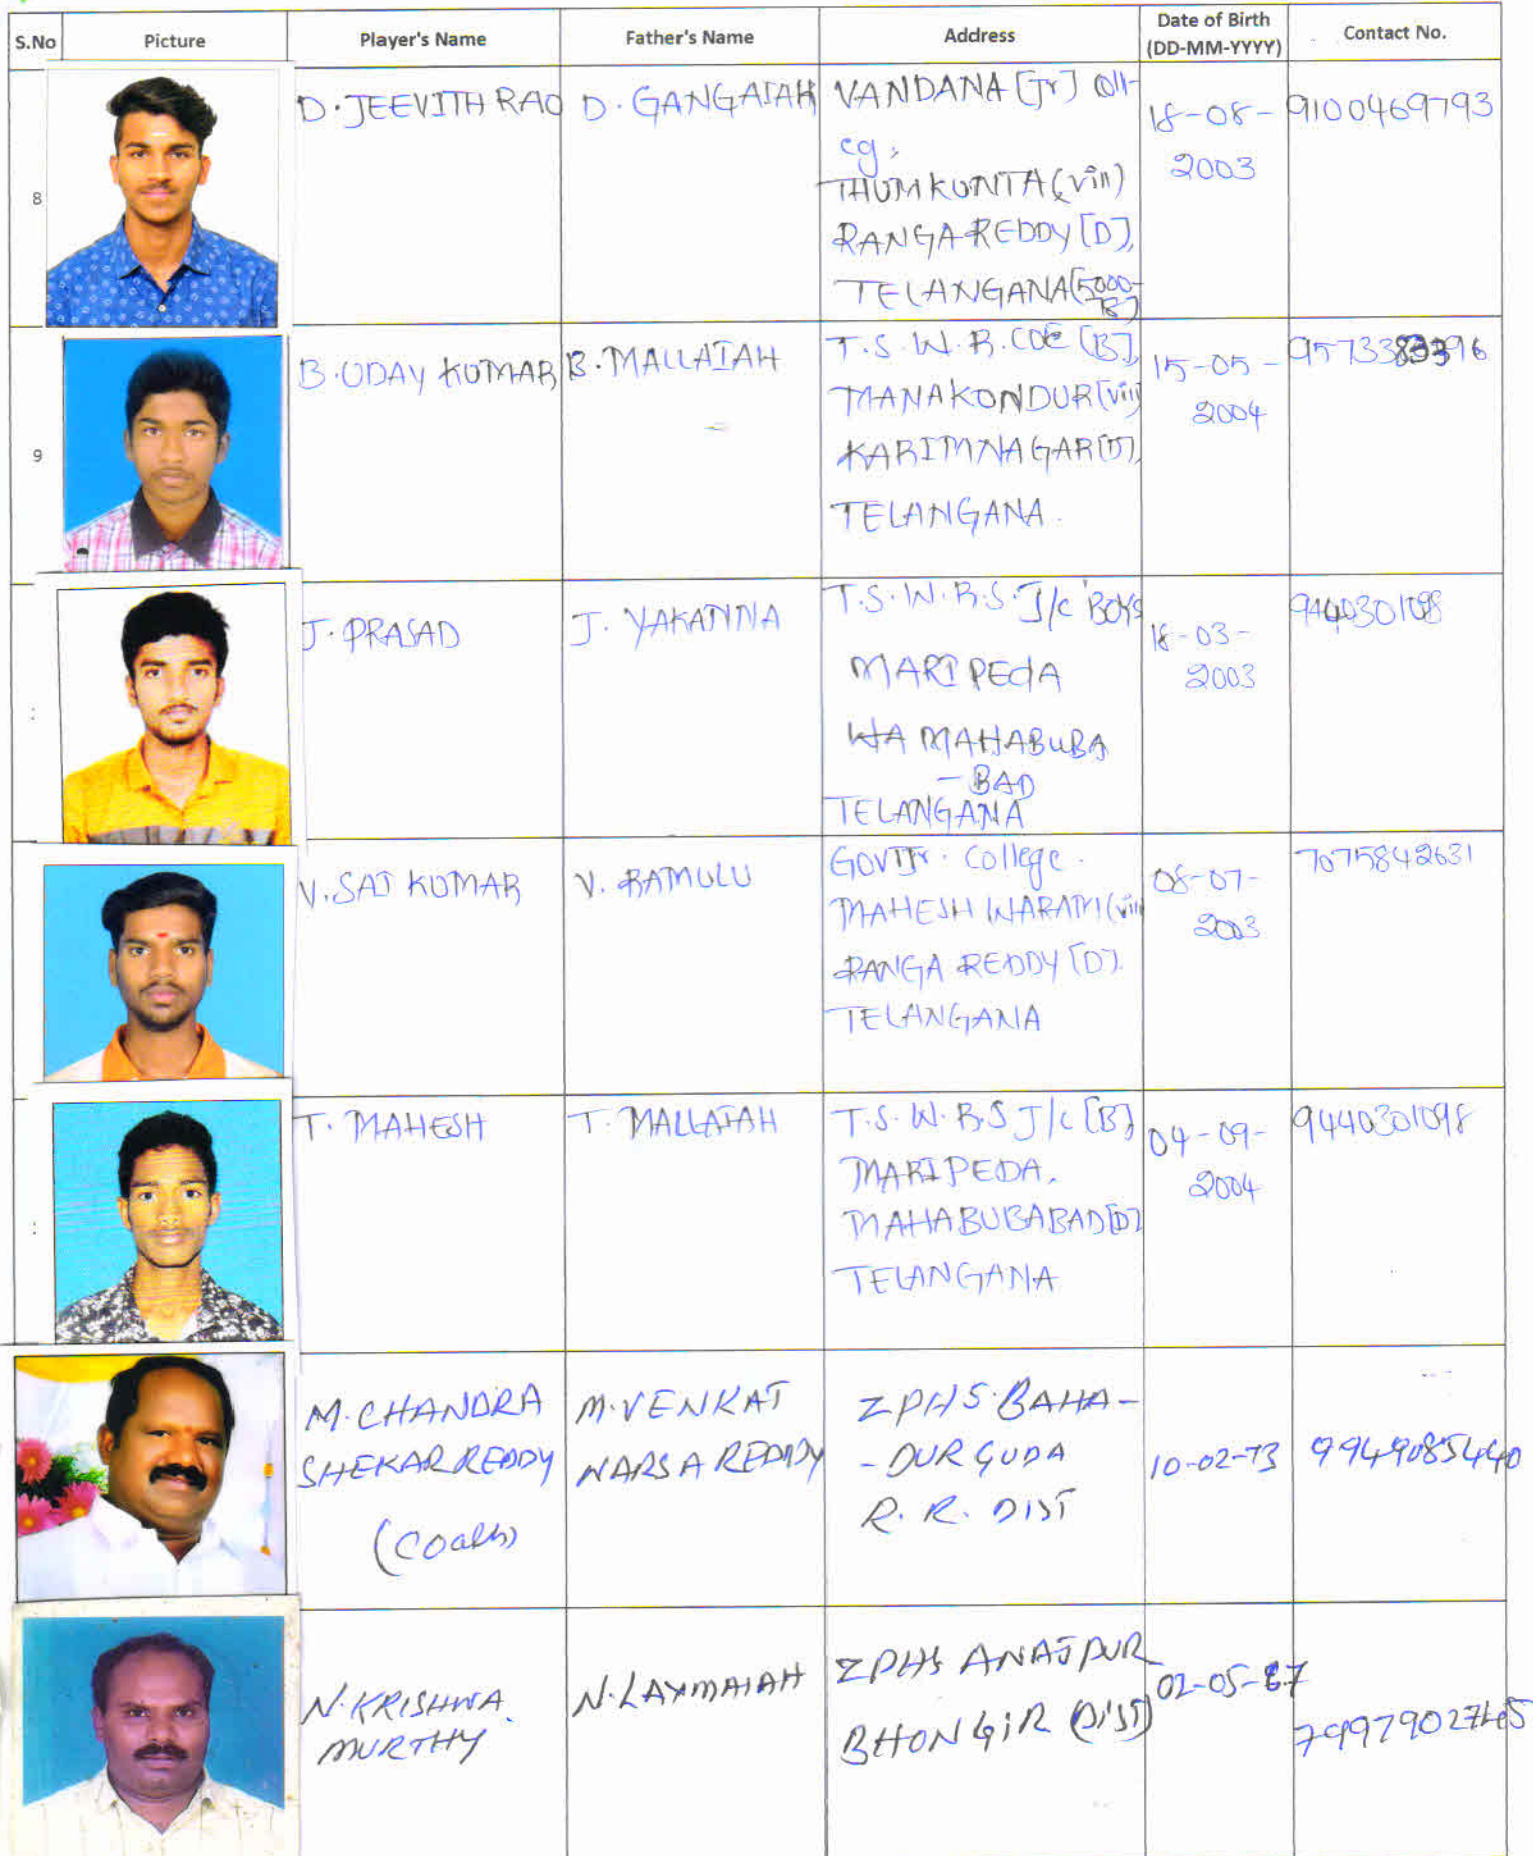 S.No Picture Player's Name Father's Name Address Date of Birth (DD-MM-YYYY) Contact No.
8
D. JEEVITH RAO
D. GANGAIAH
VANDANA [Jr] Coll-
eg,
THUMKUNTA (vill)
RANGA REDDY [D],
TELANGANA (5000-
78)
18-08-
2003
9100469793
9
B. UDAY KUMAR
B. MALLAIAH
T.S.W.R.COE [B],
MANAKONDUR [vill]
KARIMNAGAR [D],
TELANGANA.
15-05-
2004
J. PRASAD
J. YAKANNA
T.S.W.R.S. J/c BOYS
MARIPEDA
MAHABUBA
- BAD
TELANGANA
18-03-
2003
9440301098
V. SAI KUMAR
V. RAMULU
GOVT Jr. College.
MAHESHWARAM (vill)
RANGA REDDY [D].
TELANGANA
08-07-
2003
7075842631
T. MAHESH
T. MALLAIAH
T.S.W.R.S J/c [B]
MARIPEDA,
MAHABUBABAD [D]
TELANGANA
04-09-
2004
9440301098
M. CHANDRA
SHEKAR REDDY
(Coach)
M. VENKAT
NARSA REDDY
ZPHS BAHA-
- DUR GUDA
R. R. DIST
10-02-73
9949085440
N. KRISHNA
MURTHY
N. LAXMAIAH
ZPHS ANAJPUR
BHONGIR (DIST)
7997902745